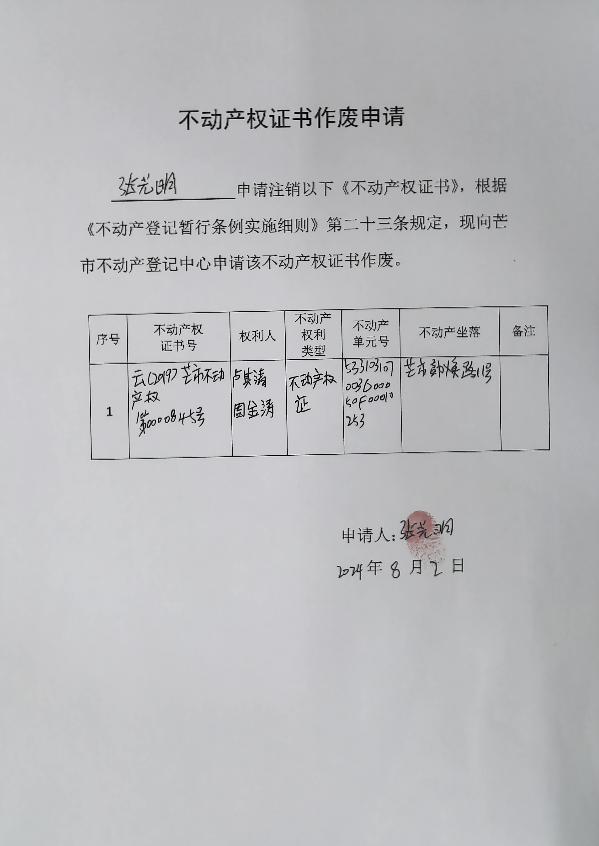 不动产权证书作废申请
张光明 申请注销以下《不动产权证书》，根据
《不动产登记暂行条例实施细则》第二十三条规定，现向芒
市不动产登记中心申请该不动产权证书作废。
序号 不动产权证书号 权利人 不动产权利类型 不动产单元号 不动产坐落 备注
1
云(2017)芒市不动
产权
第0000845号
卢其清
周金涛
不动产权
证
533103107
003G000
50F00010
253
芒市 路 号
申请人：张光明
2024年8月2日